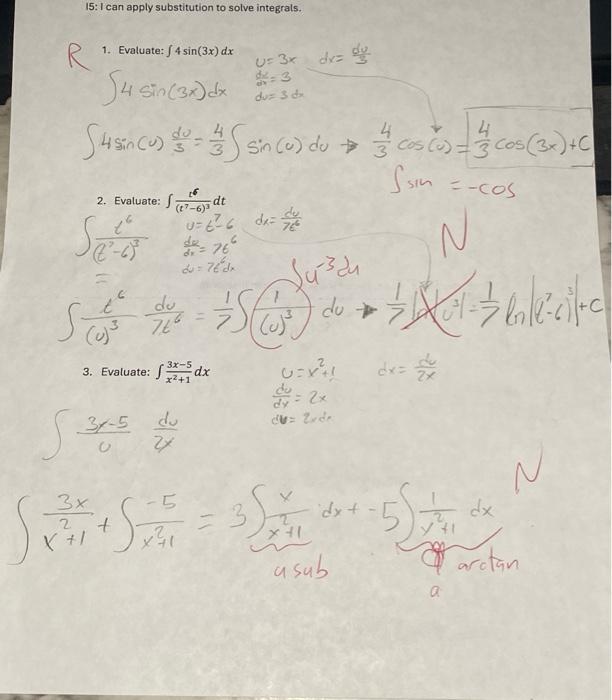 I5: I can apply substitution to solve integrals.
R 1. Evaluate: ∫ 4 sin(3x) dx
u = 3x dx = du/3
∫ 4 sin(3x) dx du/dx = 3
du = 3 dx
∫ 4 sin(u) du/3 = 4/3 ∫ sin(u) du → 4/3 cos(u) = 4/3 cos(3x) + C
∫ sin = -cos
2. Evaluate: ∫ t⁶/(t⁷−6)³ dt
∫ t⁶/(t⁷-6)³ u = t⁷-6 dx = du/7t⁶ N
= du/dx = 7t⁶
du = 7t⁶ dx
∫ u⁻³ du
∫ t⁶/(u)³ du/7t⁶ = 1/7 ∫ 1/(u)³ du → 1/7 ln|u³| = 1/7 ln|(t⁷-6)³| + C
3. Evaluate: ∫ 3x−5/x²+1 dx
u = x²+1 dx = du/2x
du/dx = 2x
du = 2x dx
∫ 3x-5/u du/2x
N
∫ 3x/x²+1 + ∫ -5/x²+1 = 3 ∫ x/x²+1 dx + -5 ∫ 1/x²+1 dx
u sub arctan
a